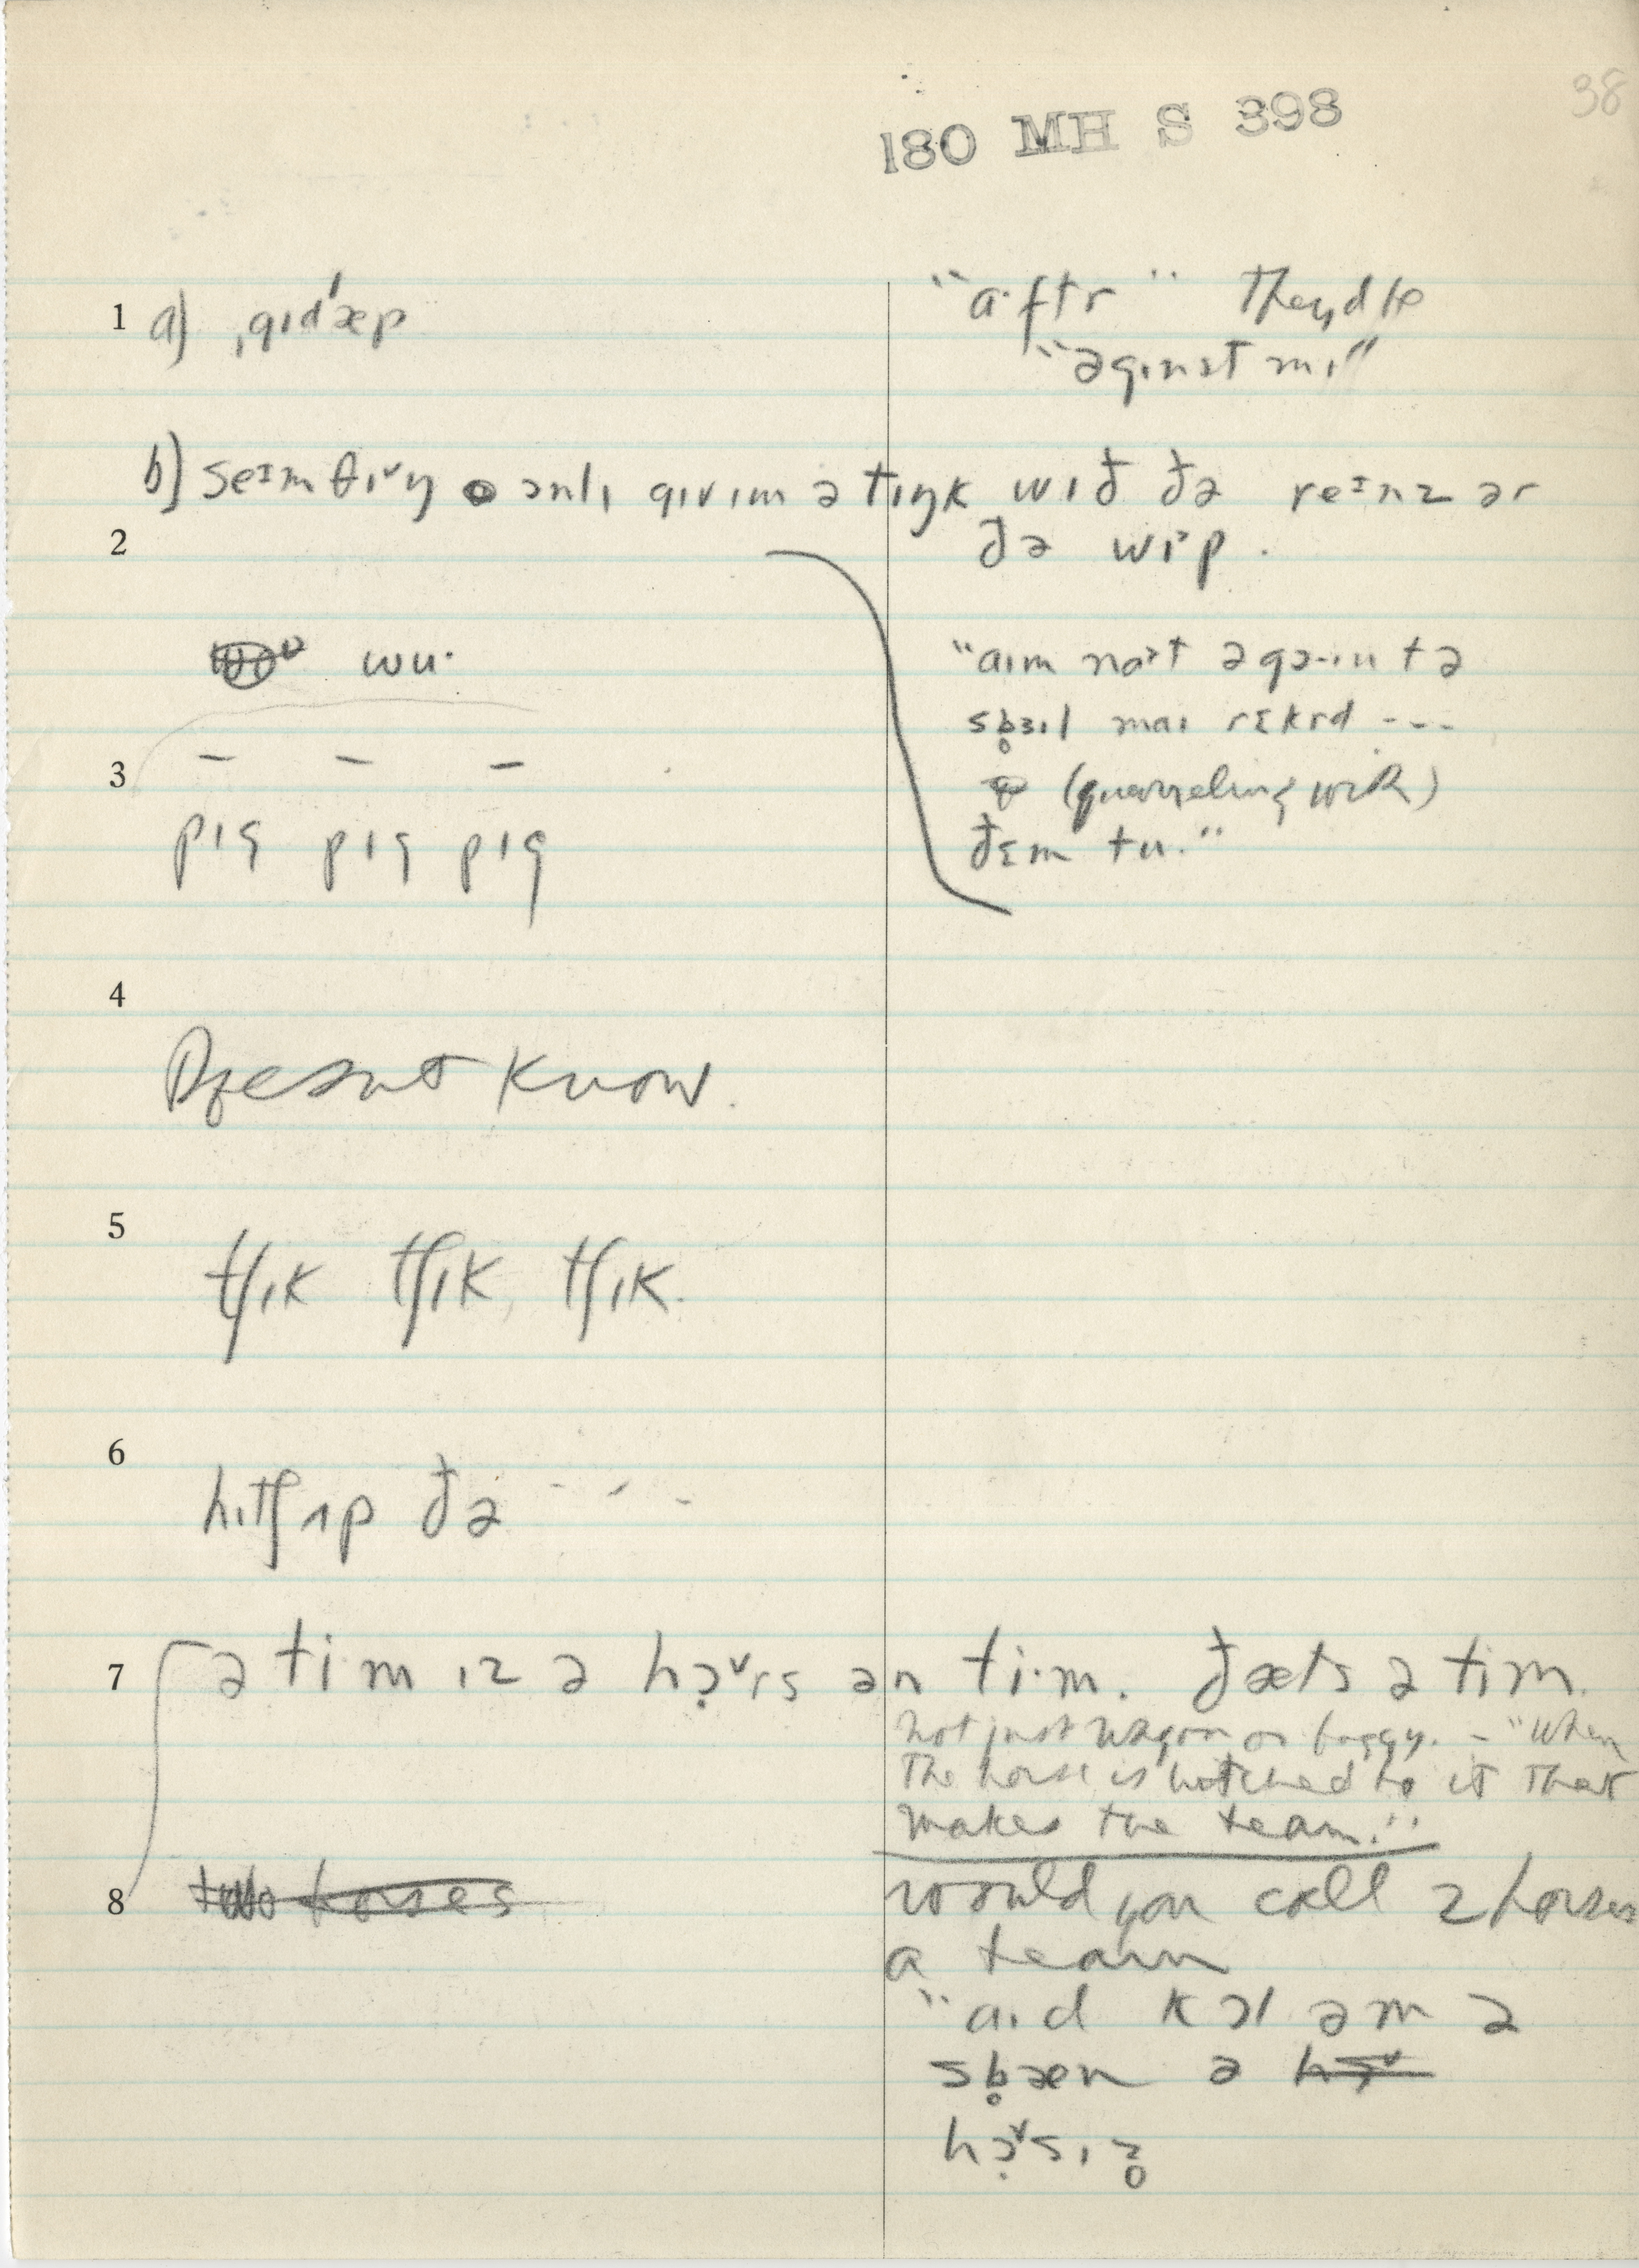 38
180 MH S 398
1 a) ˌgɪdˈæp
"a·ftr" They'd be
"əgɪnst mɪ"
b) seɪm θɪ˅ŋ ɔnlɪ gɪvɪm ə tɪŋk wɪð ðə reɪnz ər
2
ðə wɪp.
wu·
"aɪm nat əgɔ·ɪn tə
sb̥ɜɪl maɪ rɛkrd ---
3 — — —
(quarreling with)
pɪg pɪg pɪg
ðɛm tu."
4
Doesn't know.
5
tʃɪk tʃɪk, tʃɪk.
6
hɪtʃ ʌp ðə - - -
7 ə ti·m ɪz ə hɔ̣˅rs ən ti·m. ðæts ə tim.
not just wagon or buggy. - "When
the horse is hitched to it that
makes the team."
8 two horses
would you call 2 horses
a team
"aɪd kɔl əm ə
sb̥æn ə
hɔ̣˅sɪz̥